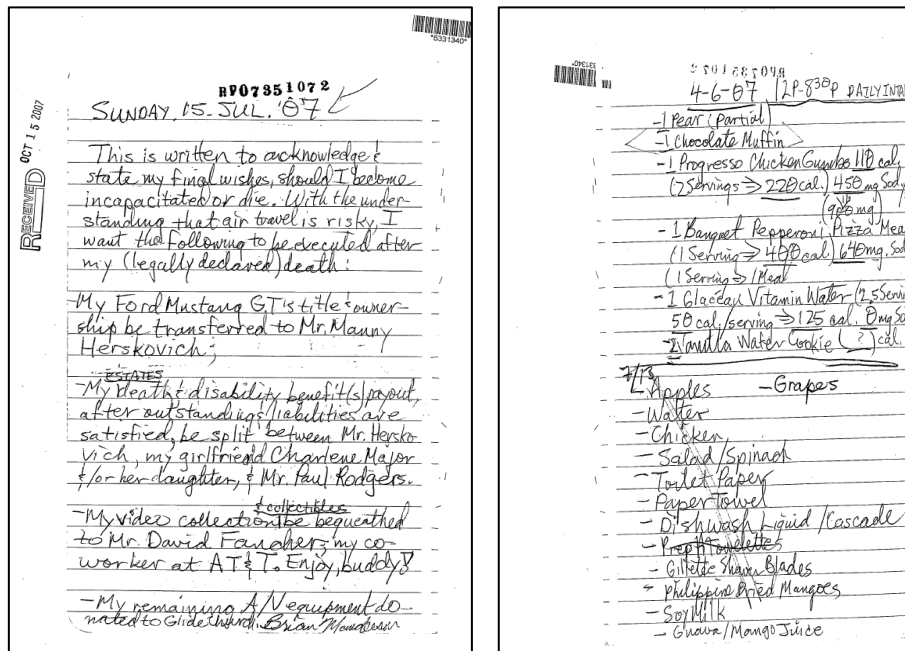 *6331340*
RP07351072
SUNDAY, 15. JUL. '07
RECEIVED OCT 15 2007
This is written to acknowledge &
state my final wishes, should I become
incapacitated or die. With the under-
standing that air travel is risky, I
want the following to be executed after
my (legally declared) death:
-My Ford Mustang GT's title & owner-
ship be transferred to Mr. Manny
Herskovich;
ESTATES
-My death & disability benefit(s) payout,
after outstandings/liabilities are
satisfied, be split between Mr. Hersko
vich, my girlfriend Charlene Major
&/or her daughter, & Mr. Paul Rodgers.
& collectibles
-My video collection be bequeathed
to Mr. David Faugher, my co-
worker at AT&T. Enjoy, buddy!
-My remaining A/V equipment do-
nated to Glide Church. Brian
RP07351072
4-6-07 12P-830P DAILY INTA
-1 Pear (partial)
-1 Chocolate Muffin
-1 Progresso Chicken Gumbo 110 cal.
(2 Servings => 220 cal.) 450 mg Sod
(900 mg)
-1 Banquet Pepperoni Pizza Mea
(1 Serving => 400 cal.) 640 mg. Sod
(1 Serving => 1 Meal
-1 Glaceau Vitamin Water (2.5 Servin
50 cal./serving => 125 cal. 0 mg So
-2 Vanilla Wafer Cookie (?) cal.
7/13
-Apples -Grapes
-Water
-Chicken
-Salad/Spinach
-Toilet Paper
-Paper Towel
-Dishwash Liquid/Cascade
-Prep H Towelettes
-Gillette Shaver Blades
-Philippine Dried Mangoes
-Soy Milk
-Guava/Mango Juice